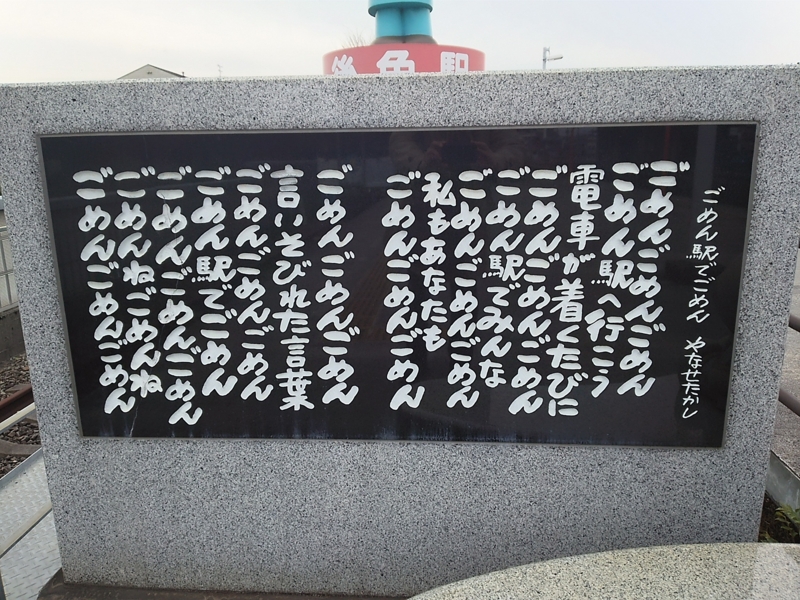 後免駅
ごめん駅でごめん　やなせたかし
ごめんごめんごめん
ごめん駅へ行こう
電車が着くたびに
ごめんごめんごめん
ごめん駅でみんな
ごめんごめんごめん
私もあなたも
ごめんごめんごめん
ごめんごめんごめん
言いそびれた言葉
ごめんごめんごめん
ごめん駅でごめん
ごめんごめんごめん
ごめんねごめんね
ごめんごめんごめん